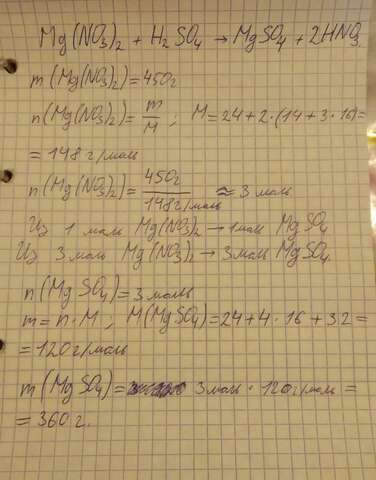 Mg(NO3)2 + H2SO4 → MgSO4 + 2HNO3
m(Mg(NO3)2)=450г
n(Mg(NO3)2)= m/M ; M=24+2·(14+3·16)=
=148 г/моль
n(Mg(NO3)2)= 450г/148г/моль ≈ 3 моль
Из 1 моль Mg(NO3)2 → 1 моль MgSO4
Из 3 моль Mg(NO3)2 → 3 моль MgSO4.
n(MgSO4)=3 моль
m=n·M ; M(MgSO4)=24+4·16+32=
=120г/моль
m(MgSO4)= 3 моль · 120г/моль =
=360 г.